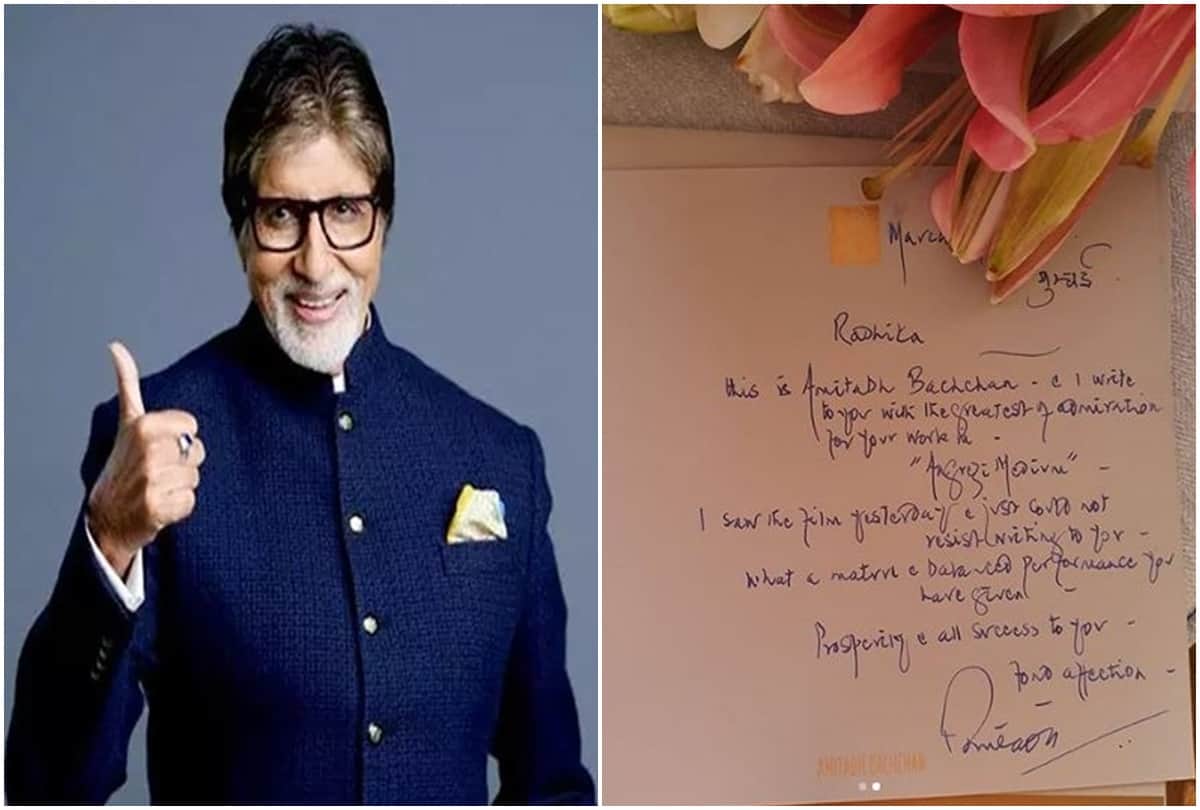 March
मुम्बई
Radhika
this is Amitabh Bachchan - & I write
to you with the greatest of admiration
for your work in -
"Angrezi Medium" -
I saw the film yesterday & just could not
resist writing to you -
what a mature & balanced performance you
have given -
Prosperity & all success to you -
fond affection -
Amitabh
AMITABH BACHCHAN